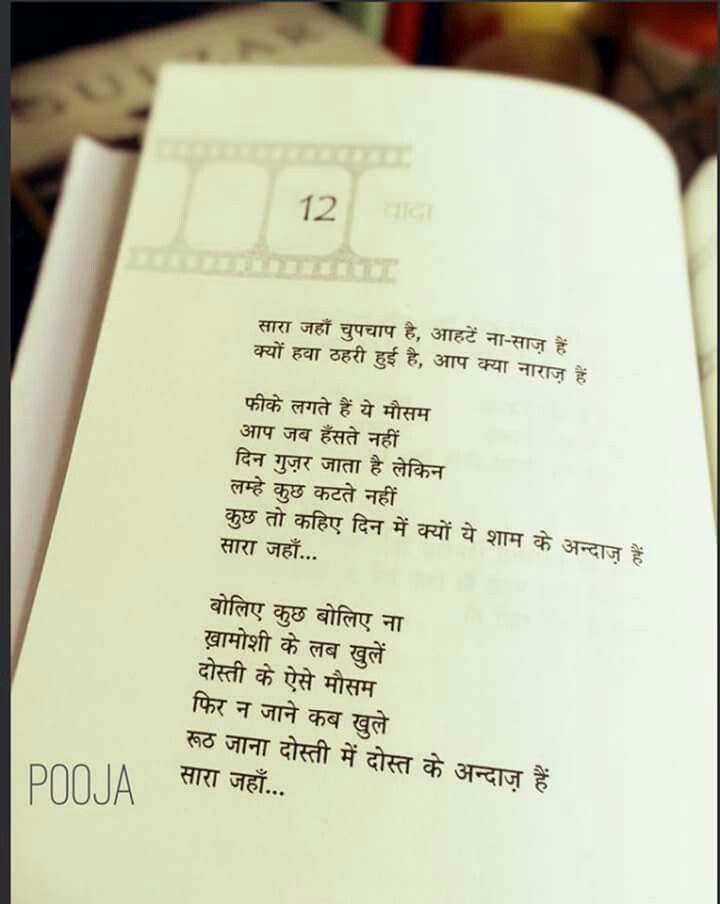 GULZAR
12 वादा
सारा जहाँ चुपचाप है, आहटें ना-साज़ हैं
क्यों हवा ठहरी हुई है, आप क्या नाराज़ हैं
फीके लगते हैं ये मौसम
आप जब हँसते नहीं
दिन गुज़र जाता है लेकिन
लम्हे कुछ कटते नहीं
कुछ तो कहिए दिन में क्यों ये शाम के अन्दाज़ हैं
सारा जहाँ...
बोलिए कुछ बोलिए ना
ख़ामोशी के लब खुलें
दोस्ती के ऐसे मौसम
फिर न जाने कब खुले
रूठ जाना दोस्ती में दोस्त के अन्दाज़ हैं
सारा जहाँ...
POOJA